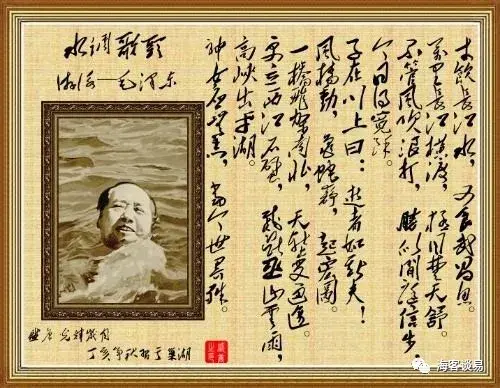 水调歌头
游泳—毛泽东
才饮长江水，又食武昌鱼。
万里长江横渡，极目楚天舒。
不管风吹浪打，胜似闲庭信步，
今日得宽馀。
子在川上曰：逝者如斯夫！
风樯动，龟蛇静，起宏图。
一桥飞架南北，天堑变通途。
更立西江石壁，截断巫山云雨，
高峡出平湖。
神女应无恙，当今世界殊。
丁亥年秋于巢湖
海客谈易